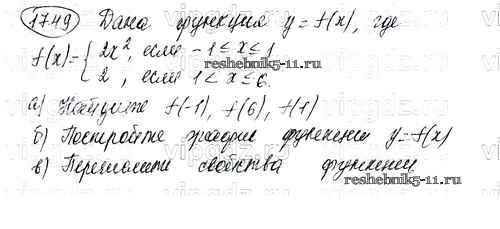 1749) Дана функция y = f(x), где
f(x)= { 2x², если -1 ≤ x ≤ 1
2, если 1 < x ≤ 6.
а) Найдите f(-1), f(6), f(1)
reshebnik5-11.ru
б) Постройте график функции y=f(x)
в) Перечислите свойства функции
reshebnik5-11.ru